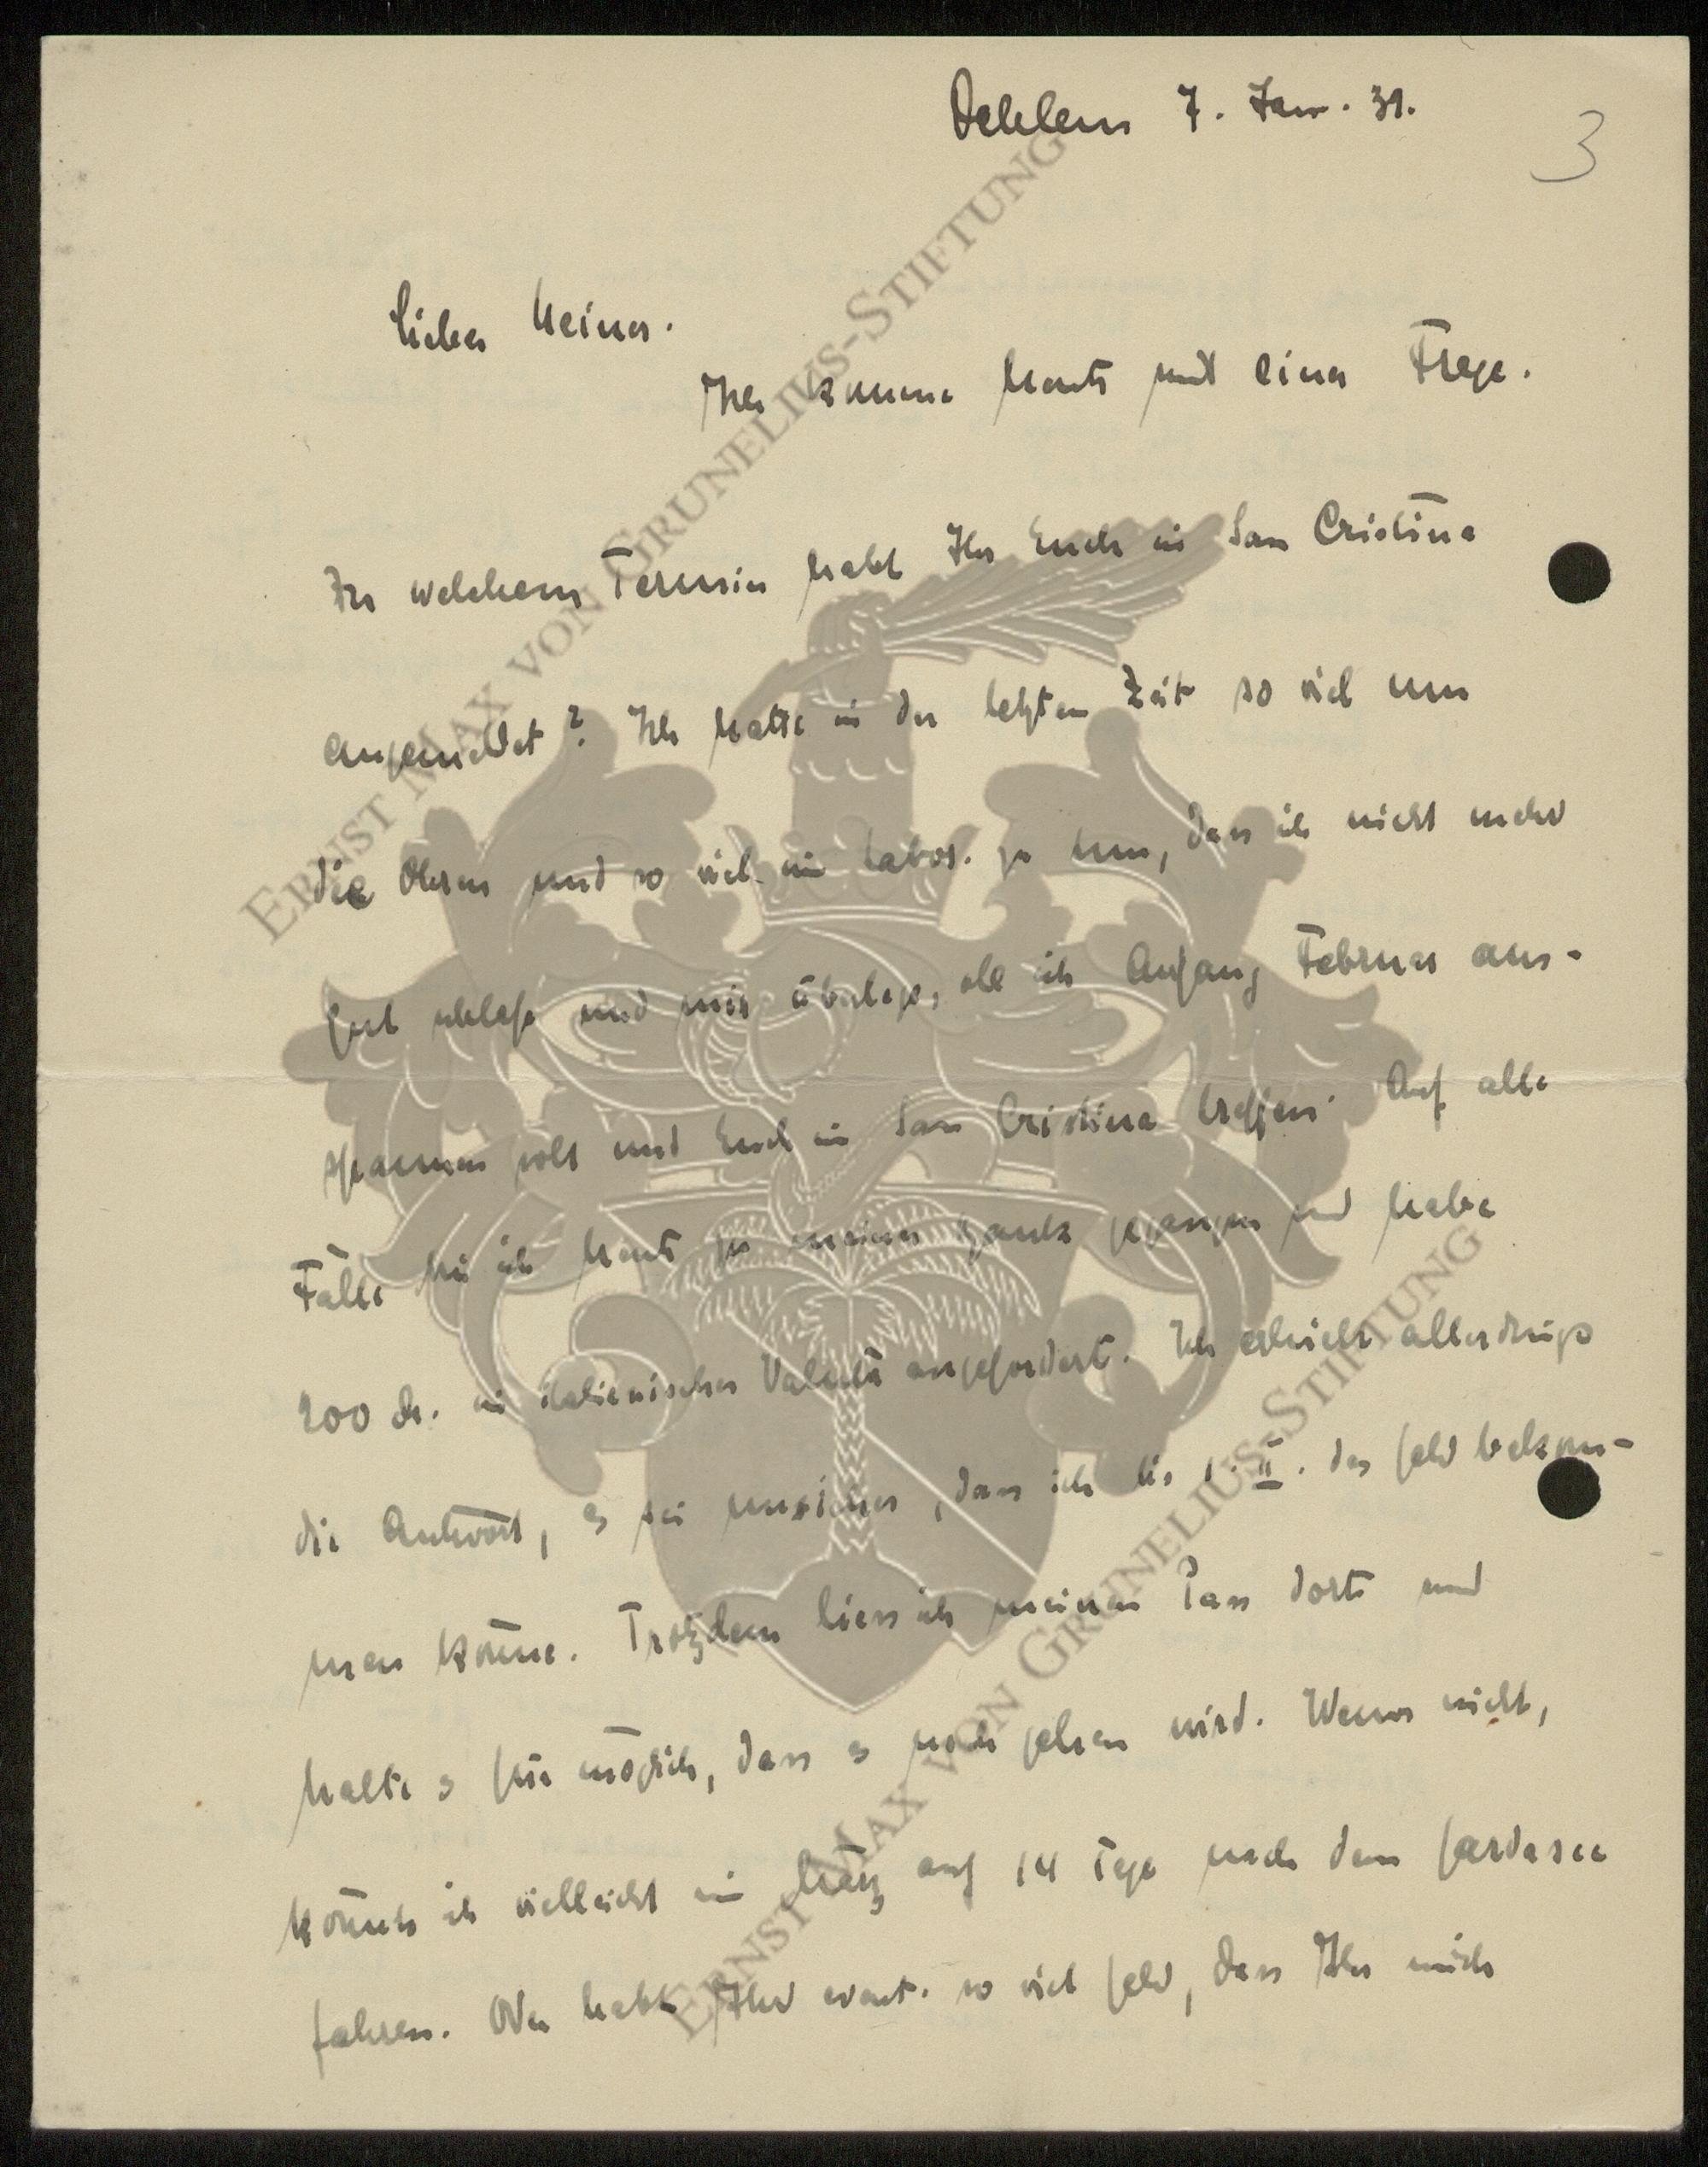 Dahlem 7. Jan. 31.
3
Lieber Heiner.
Ich komme heute mit einer Frage.
Zu welchem Termin habt Ihr Euch in San Cristina
angemeldet? Ich hatte in der letzten Zeit so viel um
die Ohren und so viel im Labor. zu tun, dass ich nicht mehr
gut schlafe und mir überlege, ob ich Anfang Februar aus-
spannen soll und Euch in San Cristina treffen. Auf alle
Fälle bin ich heute zu meiner Bank gegangen und habe
200 M. in italienischer Valuta angefordert. Ich erhielt allerdings
die Antwort, es sei unsicher, dass ich bis 1. II. das Geld bekom-
men könne. Trotzdem liess ich meinen Pass dort und
halte es für möglich, dass es noch gehen wird. Wenn nicht,
könnte ich vielleicht im März auf 14 Tage nach dem Gardasee
fahren. Oder habt Ihr event. so viel Geld, dass Ihr mich
ERNST MAX VON GRUNELIUS-STIFTUNG
ERNST MAX VON GRUNELIUS-STIFTUNG